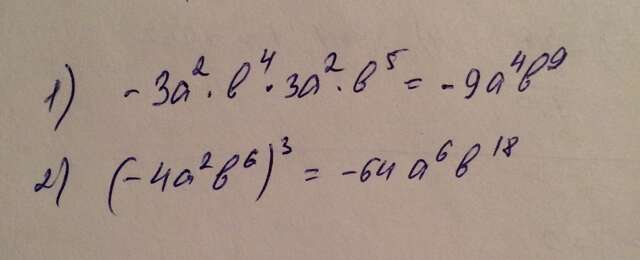 1) -3a²·b⁴·3a²·b⁵=-9a⁴b⁹
2) (-4a²b⁶)³=-64a⁶b¹⁸